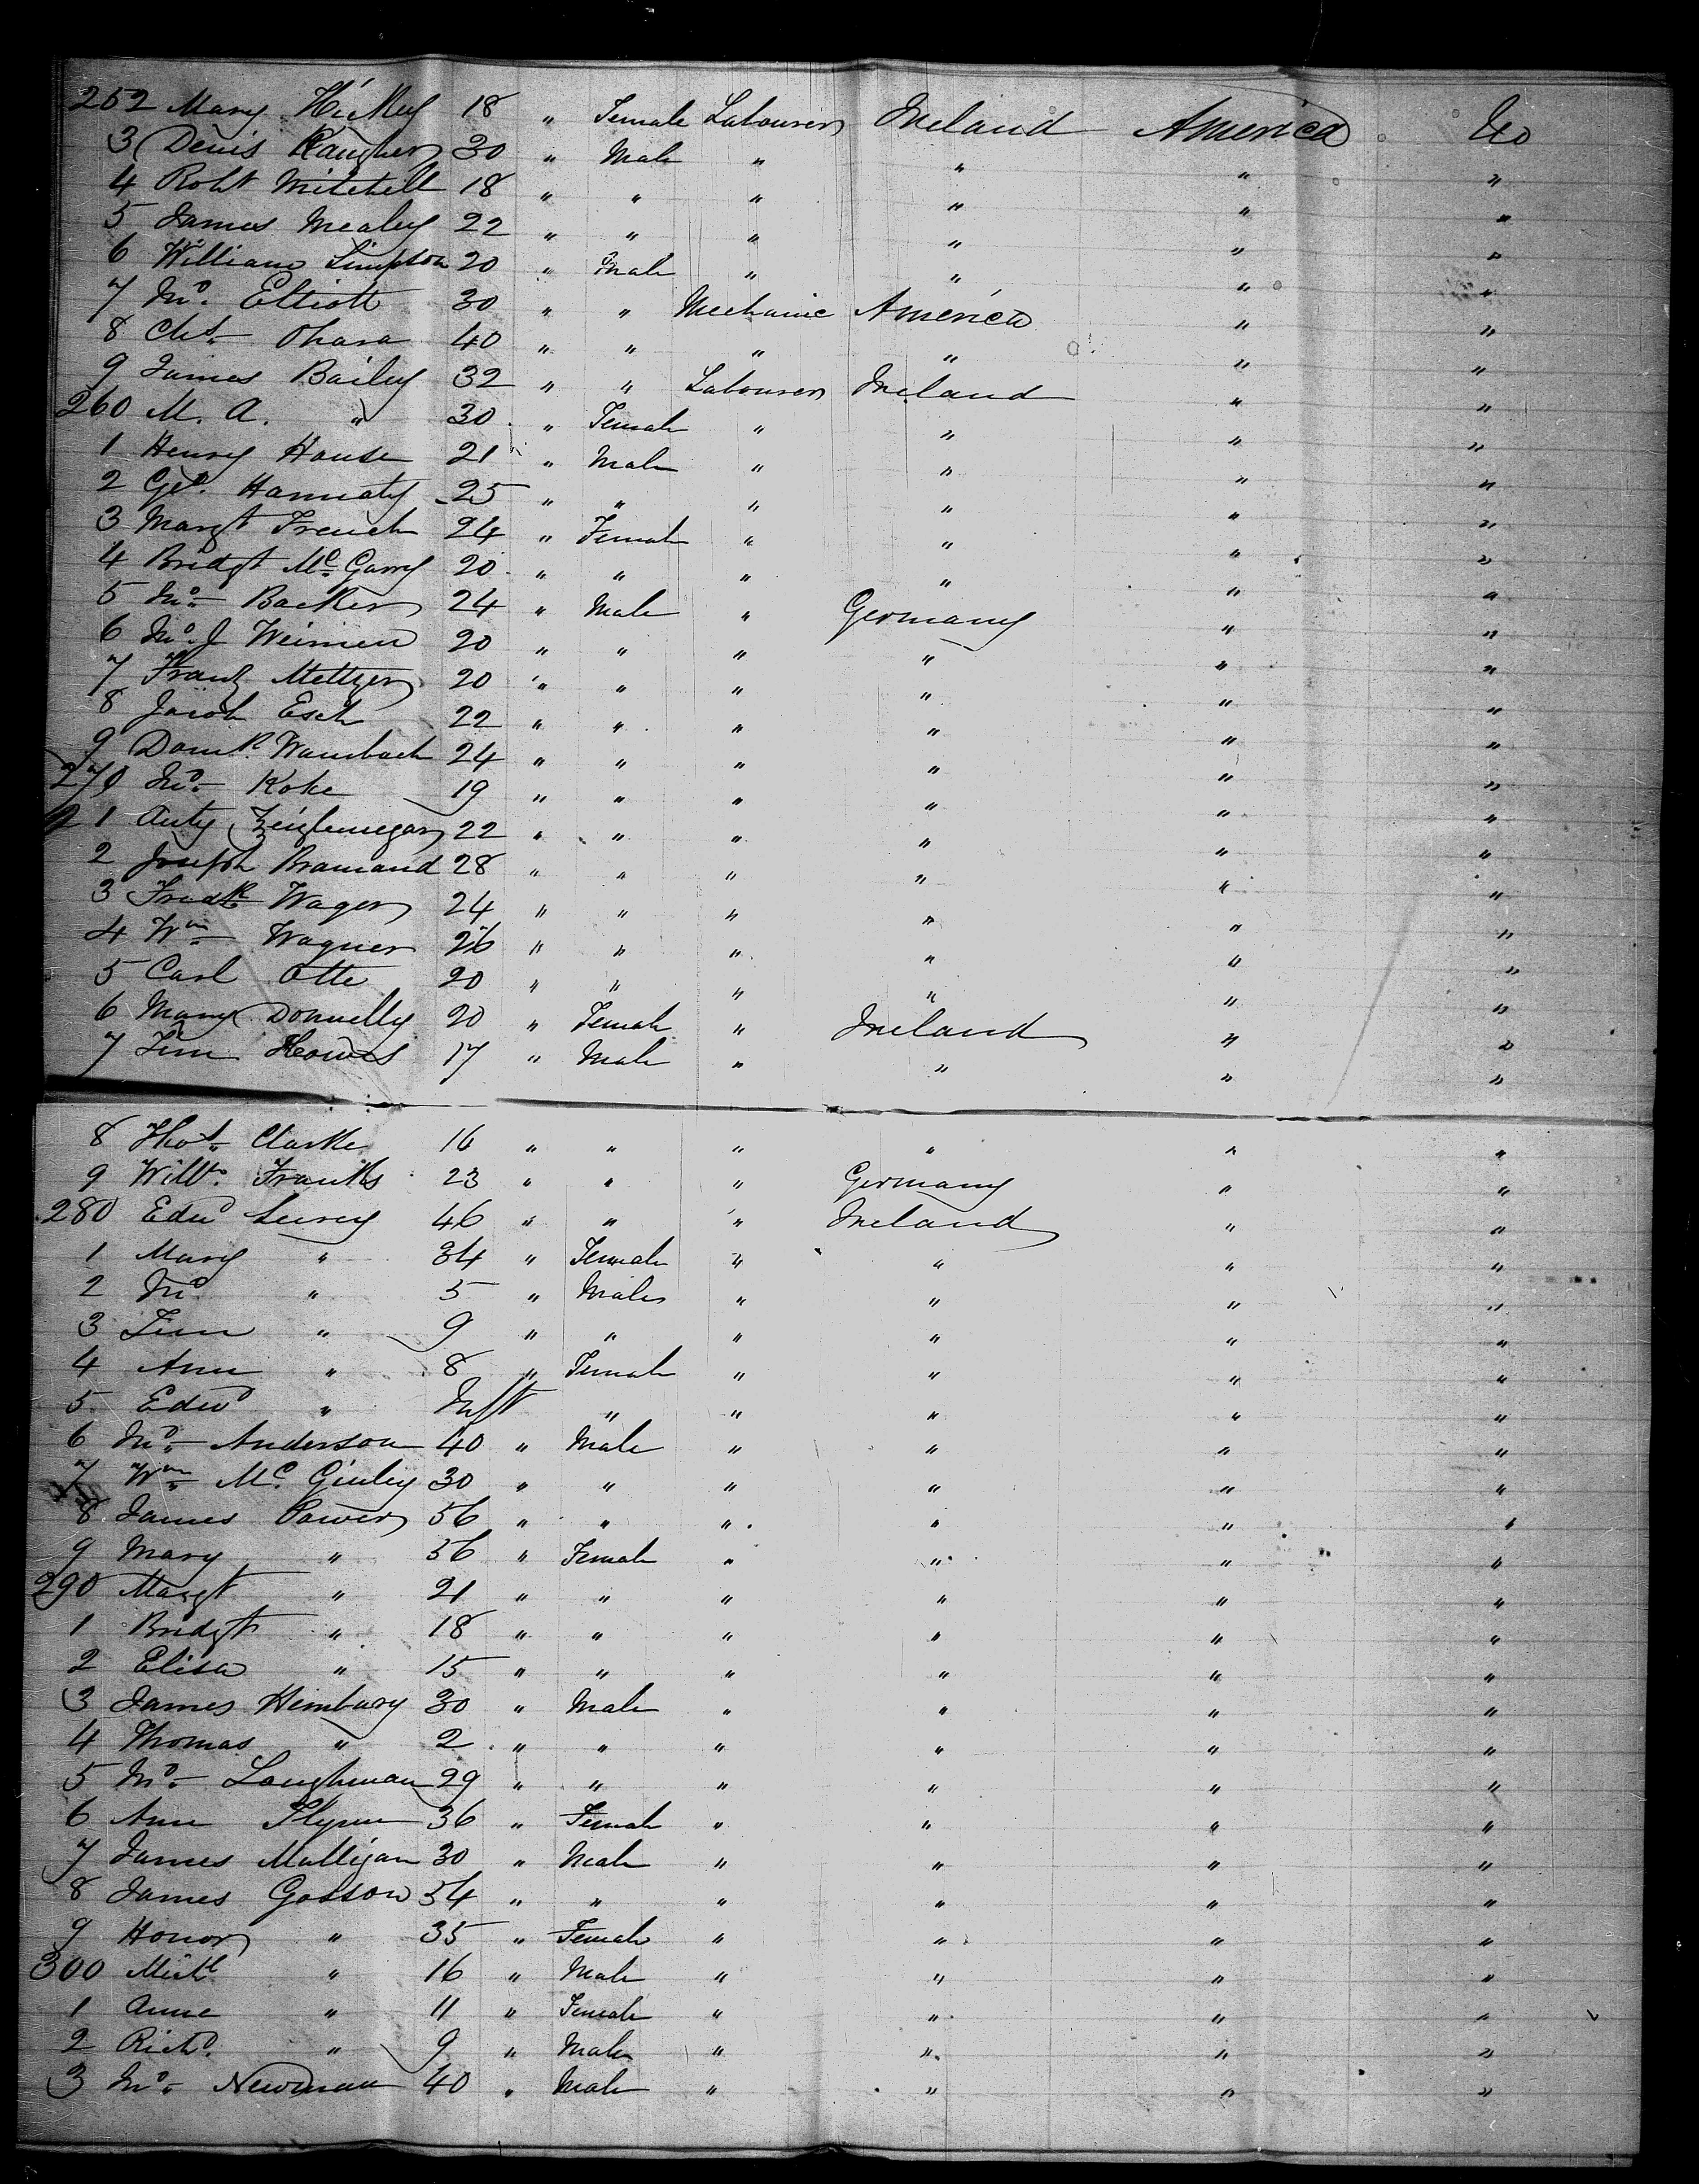 252 Mary Hickey 18 " Female Labourer Ireland America No
3 Denis Raugher 30 " Male " " " "
4 Robt Mitchell 18 " " " " " "
5 James Mealey 22 " " " " " "
6 William Simpson 20 " Male " " " "
7 Jno. Elliott 30 " " Mechanic America " "
8 Chs. Ohara 40 " " " " " "
9 James Bailey 32 " " Labourer Ireland " "
260 M. A. " 30 " Female " " " "
1 Henry House 21 " Male " " " "
2 Geo. Hannaty 25 " " " " " "
3 Margt French 24 " Female " " " "
4 Bridgt McGarry 20 " " " " " "
5 Jno. Backer 24 " Male " Germany " "
6 Jno. J Weimen 20 " " " " " "
7 Frantz Mettzer 20 " " " " " "
8 Jacob Esch 22 " " " " " "
9 Wambach 24 " " " " " "
270 Jno. Koke 19 " " " " " "
1 Anty 22 " " " " " "
2 Joseph Bramand 28 " " " " " "
3 Fredk Wager 24 " " " " " "
4 Wm Wagner 26 " " " " " "
5 Carl Otte 20 " " " " " "
6 Mary Donnelly 20 " Female " Ireland " "
7 Tim Howes 17 " Male " " " "
8 Thos. Clarke 16 " " " " " "
9 Willm. Franks 23 " " " Germany " "
280 Edwd 46 " " " Ireland " "
1 Mary " 34 " Female " " " "
2 Jno " 5 " Males " " " "
3 Tim " 9 " " " " " "
4 Ann " 8 " Female " " " "
5 Edwd " Inft " " " " "
6 Jno. Anderson 40 " Male " " " "
7 Wm McGinley 30 " " " " " "
8 James Power 56 " " " " " "
9 Mary " 56 " Female " " " "
290 Margt " 21 " " " " " "
1 Bridgt " 18 " " " " " "
2 Elisa " 15 " " " " " "
3 James Himbury 30 " Male " " " "
4 Thomas " 2 " " " " " "
5 Jno. Loughman 29 " " " " " "
6 Ann Flynn 36 " Female " " " "
7 James Mulligan 30 " Male " " " "
8 James Gosson 54 " " " " " "
9 Honor " 35 " Female " " " "
300 Michl " 16 " Male " " " "
1 Anne " 11 " Female " " " "
2 Richd. " 9 " Male " " " "
3 Jno. Newman 40 " Male " " " "